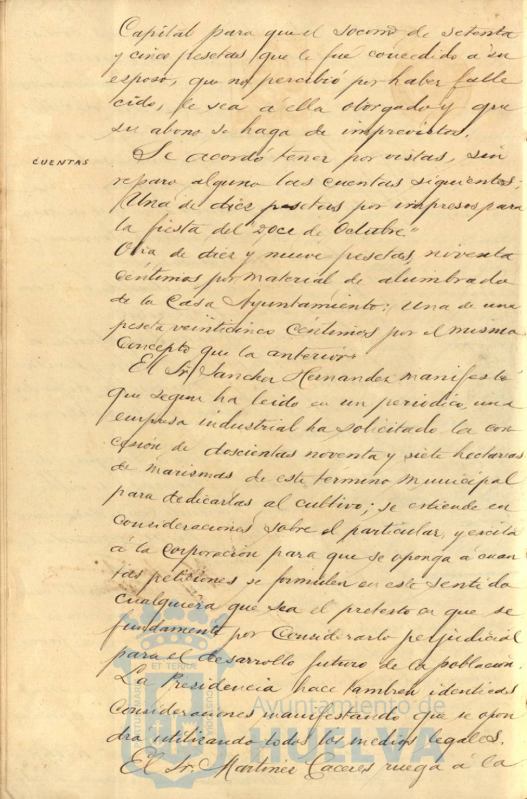 Capital para que el socorro de setenta
y cinco pesetas que le fué concedido á su
esposo, que no percibió por haber falle
cido, le sea a ella otorgado y que
su abono se haga de imprevistos.
CUENTAS
Se acordó tener por vistas, sin
reparo alguno las cuentas siguientes:
Una de diez pesetas por impresos para
la fiesta del doce de Octubre"
Otra de diez y nueve pesetas, noventa
céntimos por material de alumbrado
de la Casa Ayuntamiento; una de una
peseta veinticinco céntimos por el mismo
concepto que la anterior.
El Sr. Sanchez Hernandez manifestó
que segun ha leido en un periodico, una
empresa industrial ha solicitado la con
cesión de doscientas noventa y siete hectarias
de marismas de este término municipal
para dedicarlas al cultivo; se extiende en
consideraciones sobre el particular, y excita
á la corporación para que se oponga á cuan
tas peticiones se formulen en este sentido
cualquiera que sea el pretesto en que se
fundamente por considerarlo perjudicial
para el desarrollo futuro de la población.
La Presidencia hace tambien identicas
consideraciones manifestando que se opon
drá utilizando todos los medios legales.
El Sr. Martinez Caceres ruega á la
ET TERRE
Ayuntamiento de
HUELVA